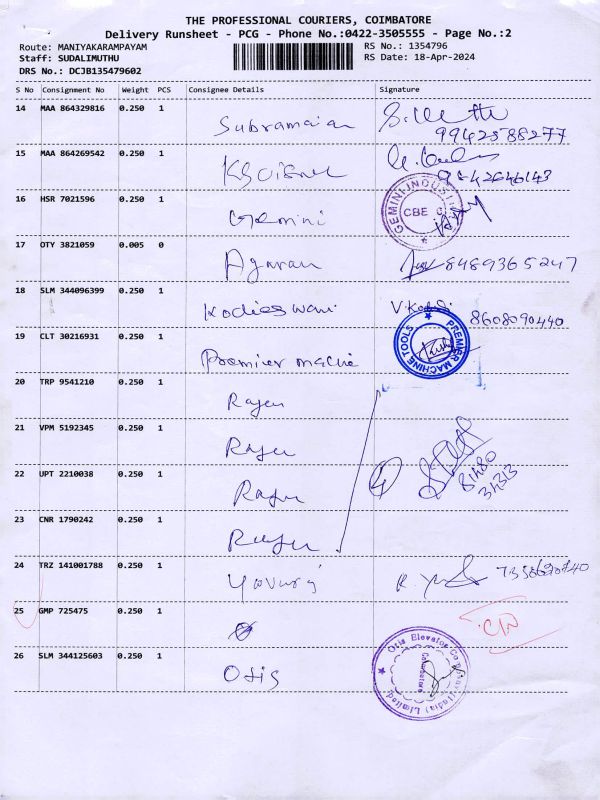 THE PROFESSIONAL COURIERS, COIMBATORE
Delivery Runsheet - PCG - Phone No.:0422-3505555 - Page No.:2
Route: MANIYAKARAMPAYAM RS No.: 1354796
Staff: SUDALIMUTHU RS Date: 18-Apr-2024
DRS No.: DCJB135479602
S No Consignment No Weight PCS Consignee Details Signature
14 MAA 864329816 0.250 1 Subramaian
9942588277
15 MAA 864269542 0.250 1
9842646143
16 HSR 7021596 0.250 1 Gemini GEMINI INDUSTRI CBE 6
17 OTY 3821059 0.005 0 Agaran 8489365247
18 SLM 344096399 0.250 1 Kodieswari V. Kodi
8608090440
19 CLT 30216931 0.250 1 Premier machie PREMIER MACHINE TOOLS
20 TRP 9541210 0.250 1 Rajen
21 VPM 5192345 0.250 1 Rajen
22 UPT 2210038 0.250 1 Rajen 4 81480
34313
23 CNR 1790242 0.250 1 Rajen
24 TRZ 141001788 0.250 1 Yovuraj
25 GMP 725475 0.250 1
26 SLM 344125603 0.250 1 Otis Otis Elevator Company (India) Limited Coimbatore